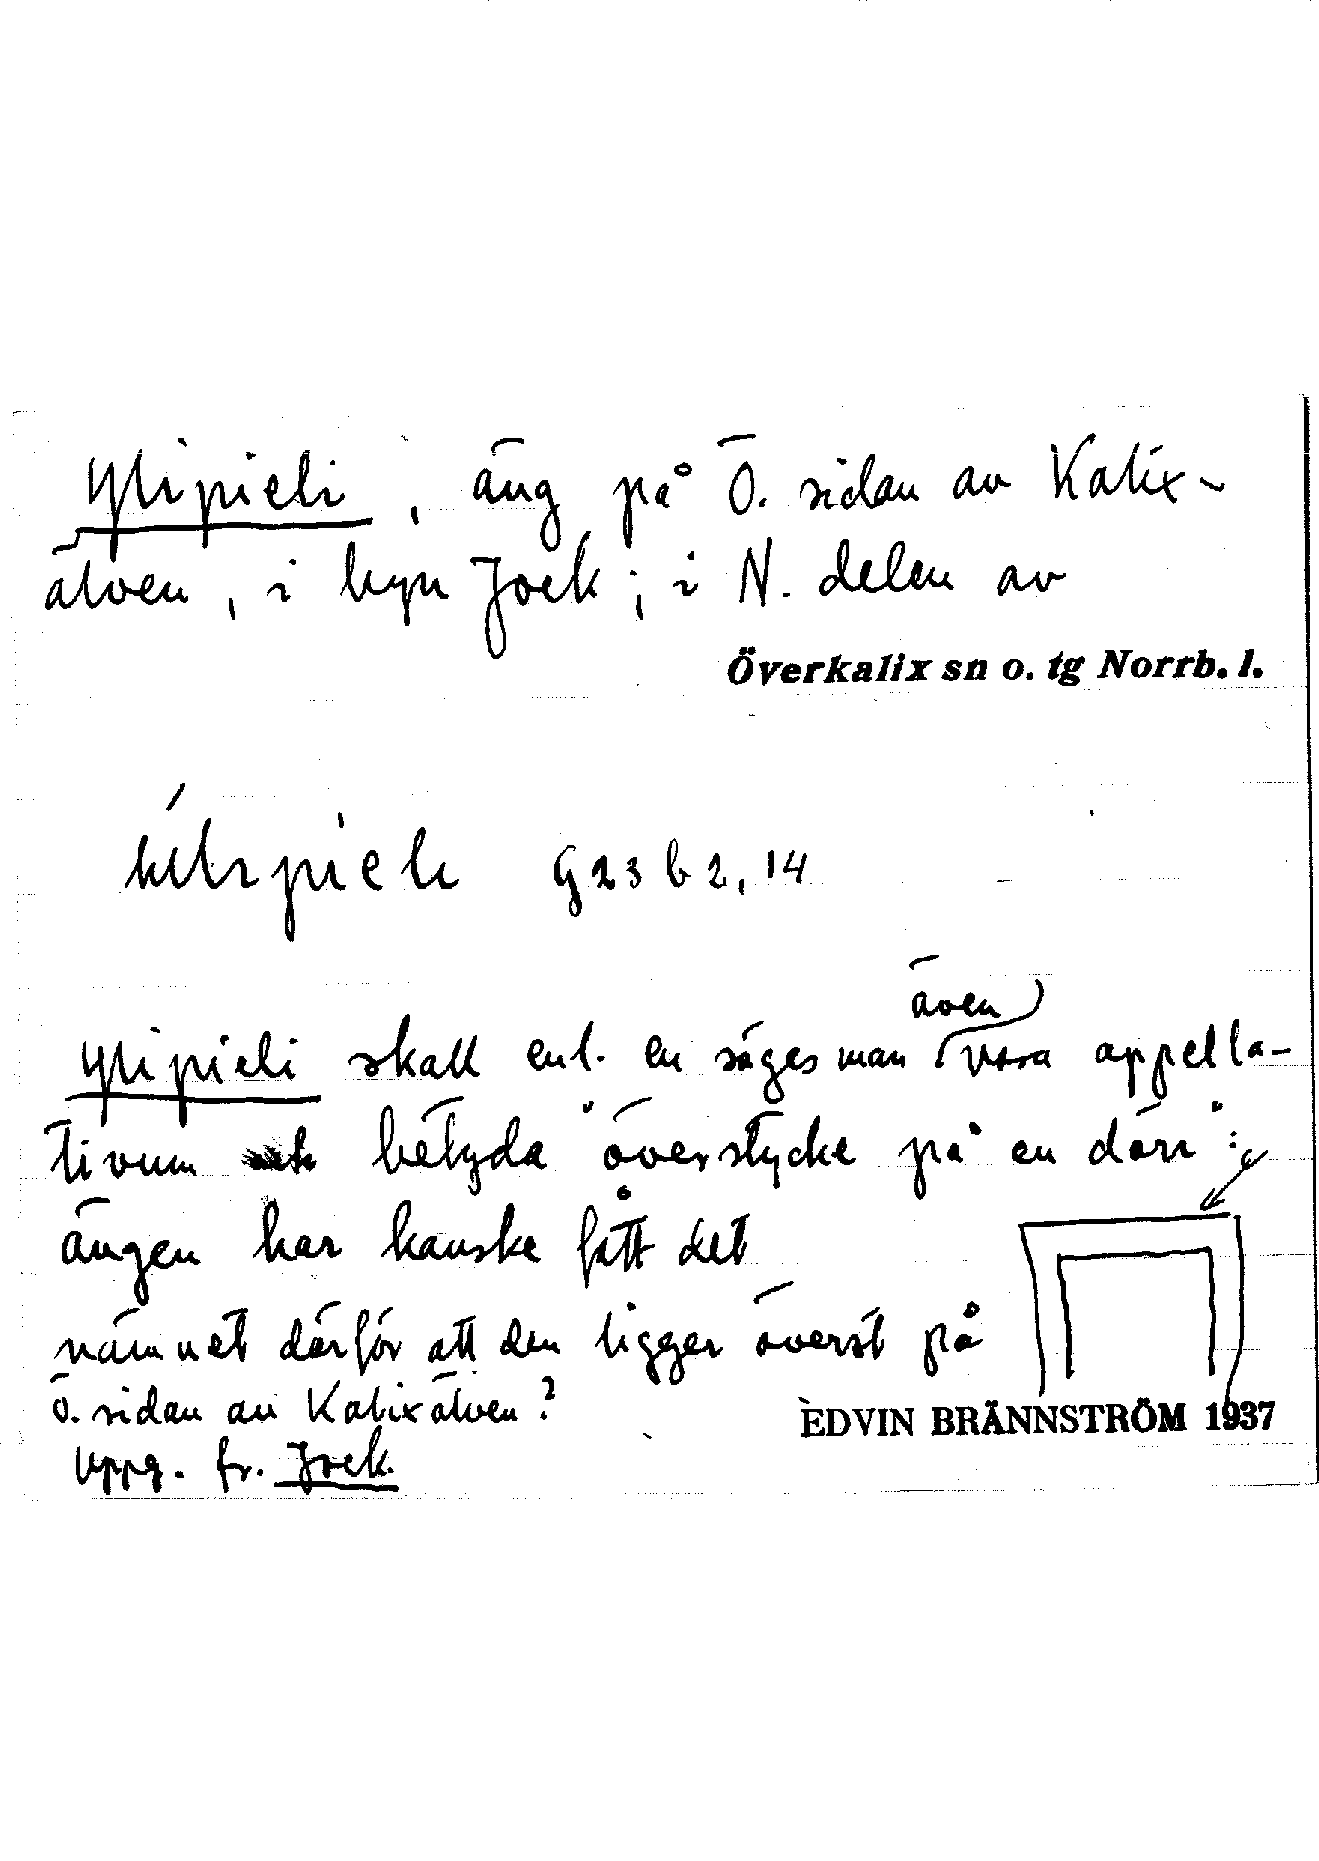 Ylipieli, äng på Ö. sidan av Kalix-
älven, i byn Joek; i N. delen av
Överkalix sn o. tg Norrb. l.
G 23 b 2, 14
även
Ylipieli skall enl. en säges man vara appella-
tivum och betyda "överstycke på en dörr":
ängen har kanske fått det
namnet därför att den ligger överst på
Ö. sidan av Kalixälven?
EDVIN BRÄNNSTRÖM 1937
Uppg. fr. Joek.